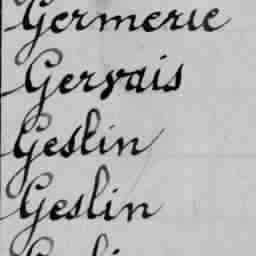 Germerie
Gervais
Geslin
Geslin